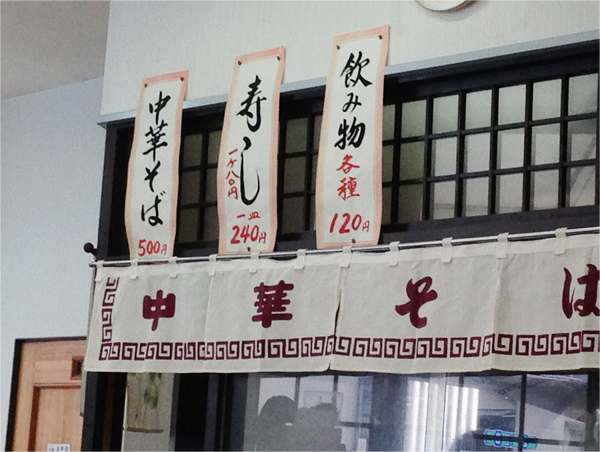 中華そば
500円
寿し
一ヶ八〇円
一皿
240円
飲み物
各種
120円
中華そば